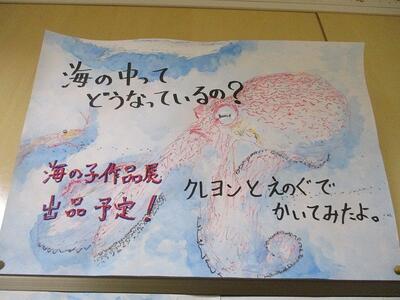 海の中って
どうなっているの?
海の子作品展
出品予定!
クレヨンとえのぐで
かいてみたよ。